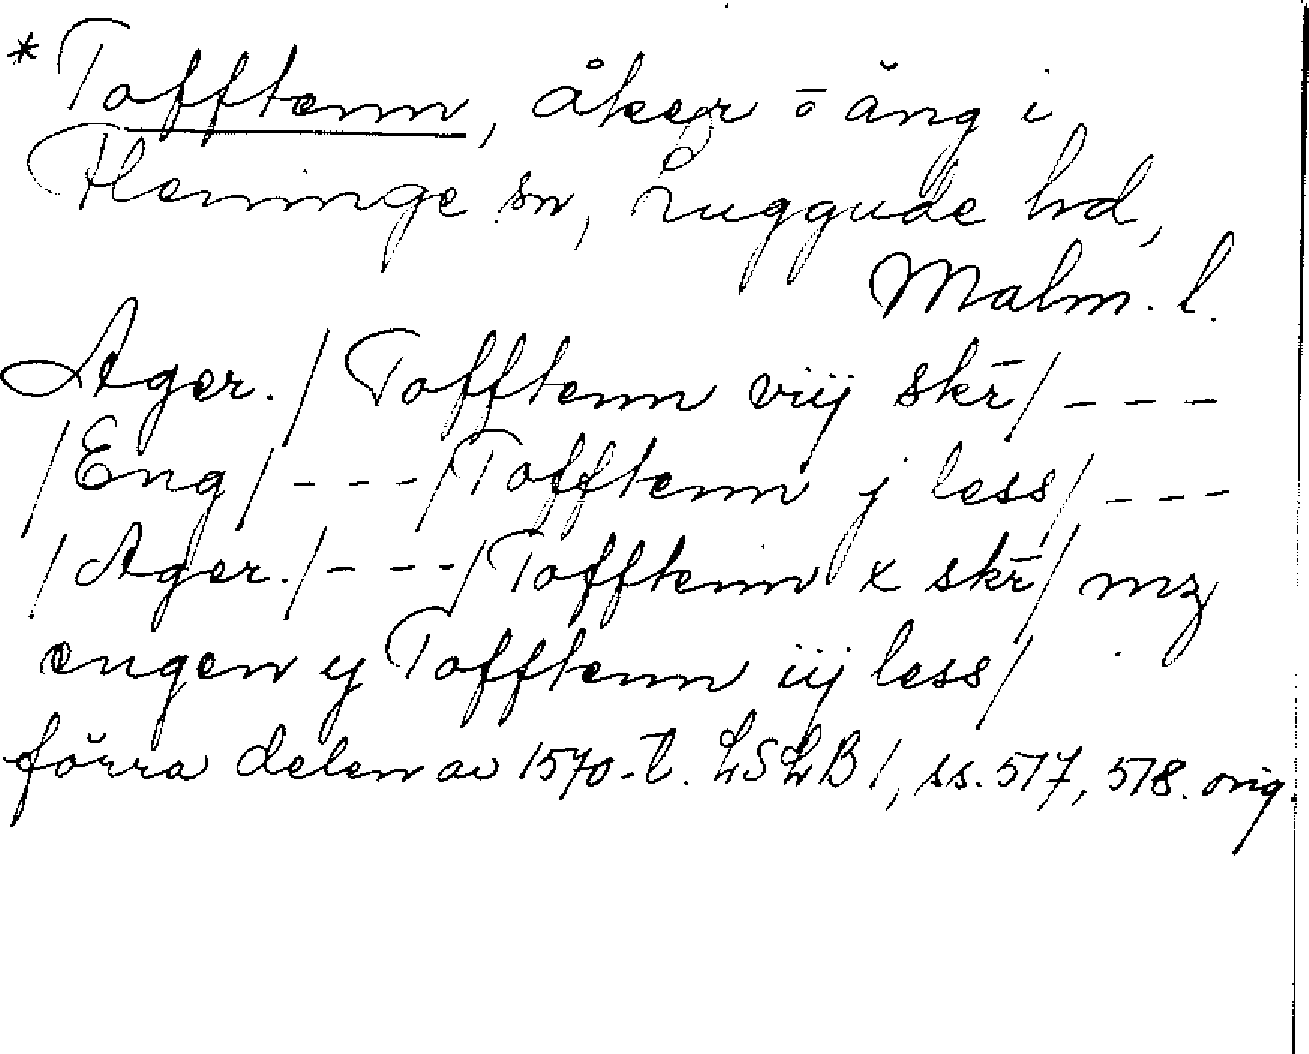 *Tofftenn, åker o äng i
Fleninge sn, Luggude hd,
Malm. l.
Ager. / Tofftenn viij skr̄ / - - -
/ Eng / - - - / Tofftenn j less / - - -
/ Ager. / - - - / Tofftenn x skr̄ / mz
engen ij Tofftenn iij less /
förra delen av 1570-t. LSLB 1, ss. 517, 518. orig.